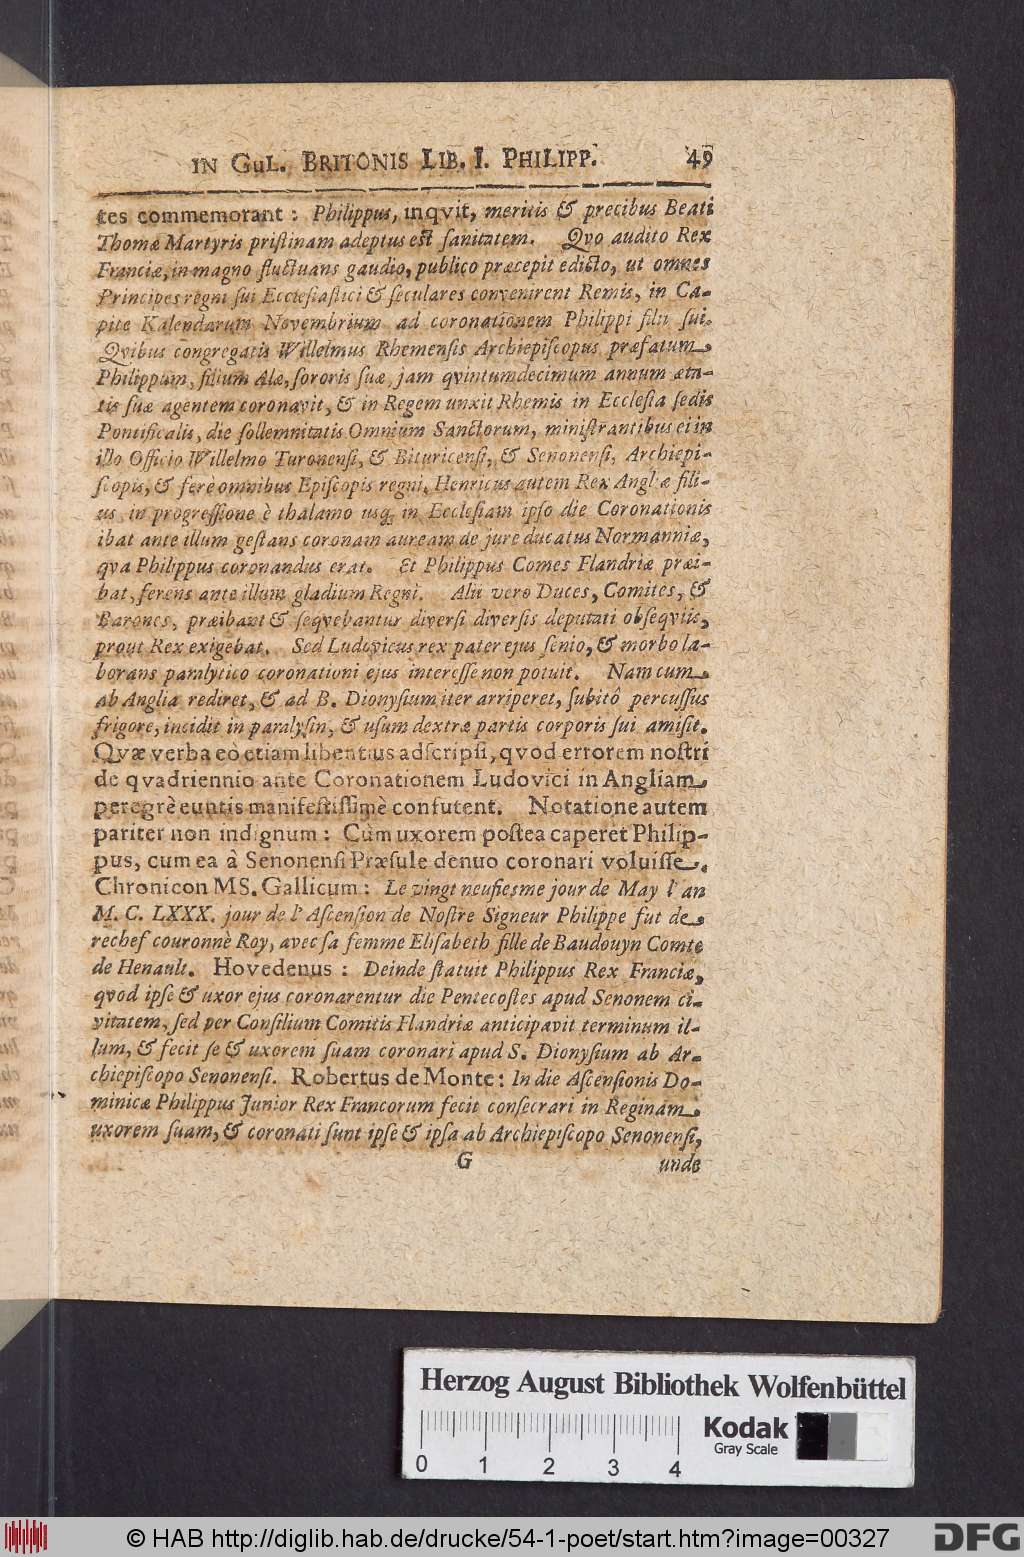 IN GuL. BRITONIS LIB. I. PHILIPP. 49
tes commemorant : Philippus, inqvit, meritis & precibus Beati
Thomæ Martyris priſtinam adeptus eſt ſanitatem. Qvo audito Rex
Franciæ, in magno fluctuans gaudio, publico præcepit edicto, ut omnes
Principes regni ſui Eccleſiaſtici & ſeculares convenirent Remis, in Ca-
pite Kalendarum Novembrium ad coronationem Philippi filii ſui.
Qvibus congregatis Willelmus Rhemenſis Archiepiſcopus præfatum
Philippum, filium Alæ, ſororis ſuæ, jam qvintumdecimum annum æta-
tis ſuæ agentem coronavit, & in Regem unxit Rhemis in Eccleſia ſedis
Pontificalis, die ſollemnitatis Omnium Sanctorum, miniſtrantibus ei in
illo Officio Willelmo Turonenſi, & Bituricenſi, & Senonenſi, Archiepi-
ſcopis, & ferè omnibus Epiſcopis regni, Henricus autem Rex Angliæ fili-
us in progreſſione è thalamo usq; in Eccleſiam ipſo die Coronationis
ibat ante illum geſtans coronam auream de jure ducatus Normanniæ,
qva Philippus coronandus erat. Et Philippus Comes Flandriæ præi-
bat, ferens ante illum gladium Regni. Alii vero Duces, Comites, &
Barones, præibant & ſeqvebantur diverſi diverſis deputati obſeqviis,
prout Rex exigebat. Sed Ludovicus rex pater ejus ſenio, & morbo la-
borans paralytico coronationi ejus intereſſe non potuit. Nam cum
ab Anglia rediret, & ad B. Dionyſium iter arriperet, ſubitô percuſſus
frigore, incidit in paralyſin, & uſum dextræ partis corporis ſui amiſit.
Qvæ verba eò etiam libentius adſcripſi, qvod errorem noſtri
de qvadriennio ante Coronationem Ludovici in Angliam
peregrè euntis manifeſtiſſimè confutent. Notatione autem
pariter non indignum : Cùm uxorem poſtea caperet Philip-
pus, cum ea à Senonenſi Præſule denuo coronari voluiſſe.
Chronicon MS. Gallicum : Le vingt neufieſme jour de May l'an
M. C. LXXX. jour de l'Aſcenſion de Noſtre Signeur Philippe fut de
rechef couronnè Roy, avec ſa femme Eliſabeth fille de Baudouyn Comte
de Henault. Hovedenus : Deinde ſtatuit Philippus Rex Franciæ,
qvod ipſe & uxor ejus coronarentur die Pentecoſtes apud Senonem ci-
vitatem, ſed per Conſilium Comitis Flandriæ anticipavit terminum il-
lum, & fecit ſe & uxorem ſuam coronari apud S. Dionyſium ab Ar-
chiepiſcopo Senonenſi. Robertus de Monte : In die Aſcenſionis Do-
minicæ Philippus Junior Rex Francorum fecit conſecrari in Reginam
uxorem ſuam, & coronati ſunt ipſe & ipſa ab Archiepiſcopo Senonenſi,
G unde
Herzog August Bibliothek Wolfenbüttel
Kodak
Gray Scale
0 1 2 3 4
© HAB http://diglib.hab.de/drucke/54-1-poet/start.htm?image=00327
DFG